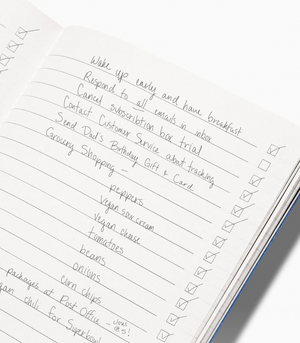 Wake up early and have breakfast
Respond to all emails in inbox
Cancel subscribtion box trial
Contact Customer Service about tracking
Send Dad's Birthday Gift & Card
Grocery Shopping -
peppers
vegan sour cream
vegan cheese
tomatoes
beans
onions
corn chips
packages at Post Office -
chili for Superbowl